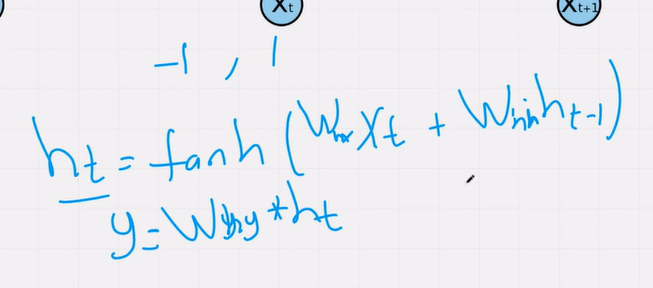 Xt Xt+1
-1 , 1
ht = tanh (Whx Xt + Whh ht-1)
y = Why * ht